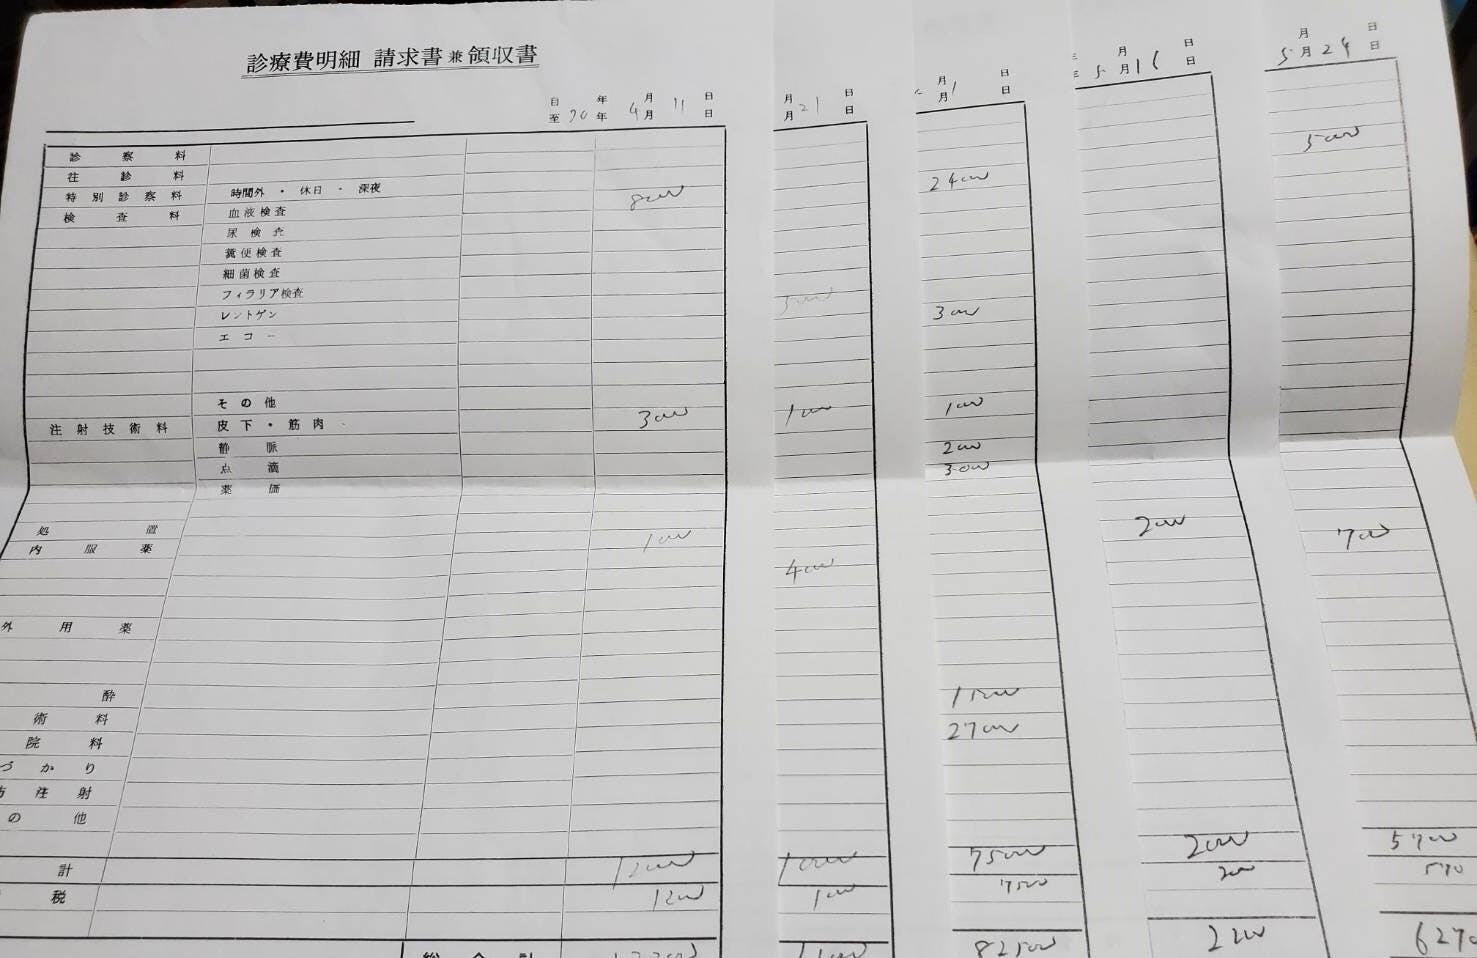 診療費明細 請求書兼領収書
自 年 月 日
至30年 4月 11日
月 日
月21日
月 日
月1日
月 日
5月16日
月 日
5月24日
診察料 5000
往診料
特別診察料 時間外・休日・深夜 8000 24000
検査料 血液検査
尿検査
糞便検査
細菌検査
フィラリア検査 5000
レントゲン 3000
エコー
その他
注射技術料 皮下・筋肉 3000 1000 1000
静脈 2000
点滴 3000
薬価
処置 2000 700
内服薬 1000 4000
外用薬
酔 15000
術料 27000
院料
づかり
防注射
の他
計 12000 10000 75000 2000 5700
税 1200 1000 7500 200 570
総合計 82500 2200 6270